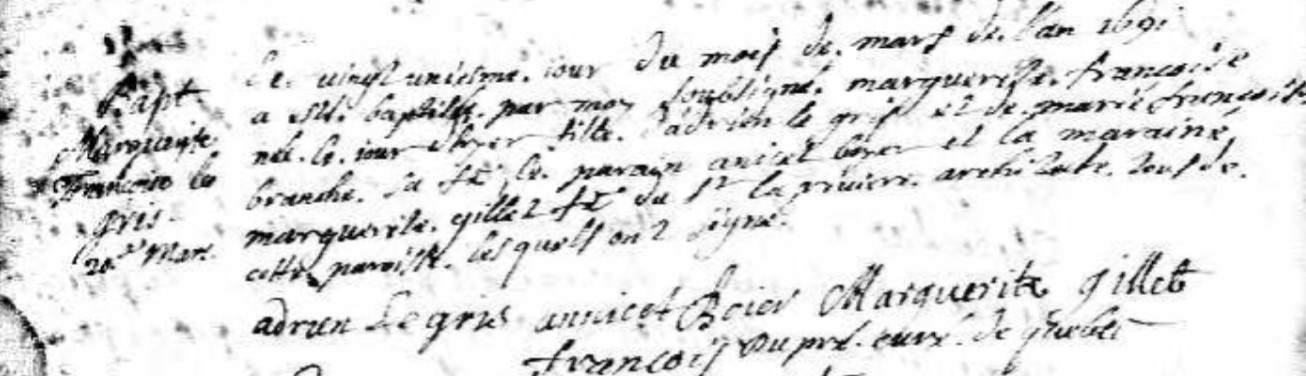 Bapt
Marguerite
Françoise le
gris
20e Mars.
Le vingt uniesme. iour du mois de. mars de. l'an 1691
a esté. baptisée. par moy soubsigné. marguerite. françoise
née. le. iour d'hyer fille. d'adrien le gris et de. marie françoise
branche. sa fe le. parain anicet boyer et la maraine
marguerite. gillet fe du sr la riviere. architecte. tous de.
cette. paroisse. lesquels ont signé.
adrien Legris annicet Boier Marguerite gillet
françois Dupré. curé. de quebec